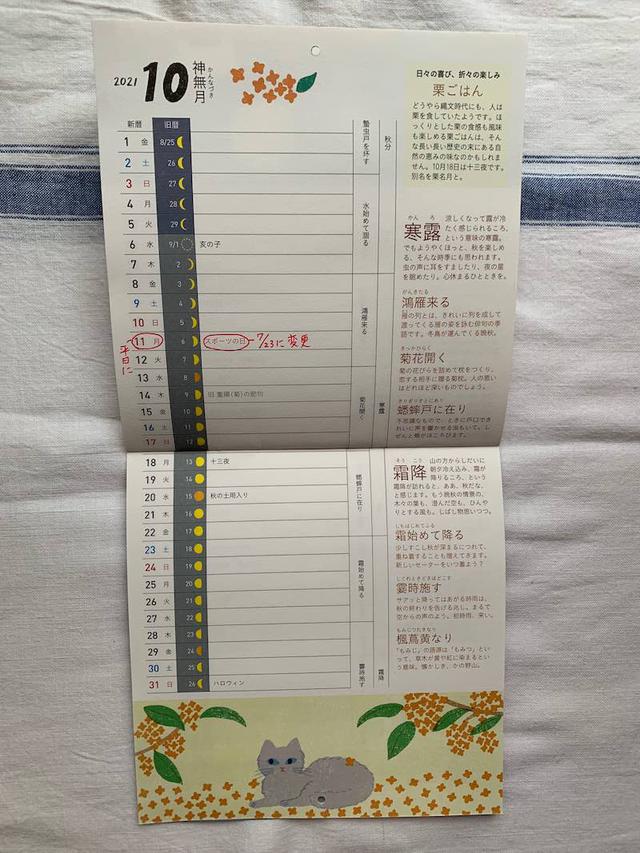 2021 10 神無月
かんなづき
新暦 旧暦
1 金 8/25
2 土 26
3 日 27
4 月 28
5 火 29
6 水 9/1 亥の子
7 木 2
8 金 3
9 土 4
10 日 5
11 月 6 スポーツの日 7/23に変更
平日に
12 火 7
13 水 8
14 木 9 旧重陽(菊)の節句
15 金 10
16 土 11
17 日 12
18 月 13 十三夜
19 火 14
20 水 15 秋の土用入り
21 木 16
22 金 17
23 土 18
24 日 19
25 月 20
26 火 21
27 水 22
28 木 23
29 金 24
30 土 25
31 日 26 ハロウィン
蟄虫戸を坏す
水始めて涸る
鴻雁来る
菊花開く
蟋蟀戸に在り
霜始めて降る
霎時施す
秋分
寒露
霜降
日々の喜び、折々の楽しみ
栗ごはん
どうやら縄文時代にも、人は
栗を食していたようです。ほ
っくりとした栗の食感も風味
も楽しめる栗ごはんは、そん
な長い長い歴史の末にある自
然の恵みの味なのかもしれま
せん。10月18日は十三夜です。
別名を栗名月と。
かんろ
寒露
涼しくなって露が冷
たく感じられるころ、
という意味の寒露。
でもようやくほっと、秋を楽しめ
る、そんな時季にも思われます。
虫の声に耳をすましたり、夜の星
を眺めたり。心休まるひとときを。
がんきたる
鴻雁来る
雁の列とは、きれいに列を成して
渡ってくる雁の姿を詠む俳句の季
語です。冬鳥が運んでくる晩秋。
きっかひらく
菊花開く
菊の花びらを詰めて枕をつくり、
恋する相手に贈る菊枕。人の思い
はどれほど深いものでしょう。
きりぎりすとにあり
蟋蟀戸に在り
不思議なもので、ときに戸口でき
れいに声を響かせる虫もいて。し
ぜんと頬がほころびます。
そうこう
霜降
山の方からしだいに
朝夕冷え込み、霜が
降りるころ、という
霜降が訪れると、ああ、秋だな、
と感じます。もう晩秋の情景の、
木々の葉も、澄んだ空も、ひんや
りとする風も。しばし物思いつつ。
しもはじめてふる
霜始めて降る
少しずつこし秋が深まるにつれて、
重ね着することも増えてきます。
新しいセーターをいつ着よう?
しぐれときどきほどこす
霎時施す
サアッと降ってはあがる時雨は、
秋の終わりを告げる兆し。まるで
空からの声のよう。初時雨、来い。
もみじつたきなり
楓蔦黄なり
「もみじ」の語源は「もみつ」とい
って、草木が黄や紅に染まるとい
う意味。懐かしき、かの野山。